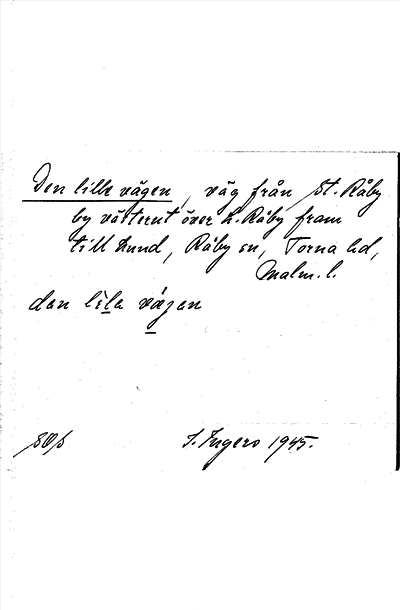 Den lille vägen, väg från St. Råby
by västerut över L. Råby fram
till Lund, Råby sn, Torna hd,
Malm. l.
dan lila vägan
I. Ingers 1945.